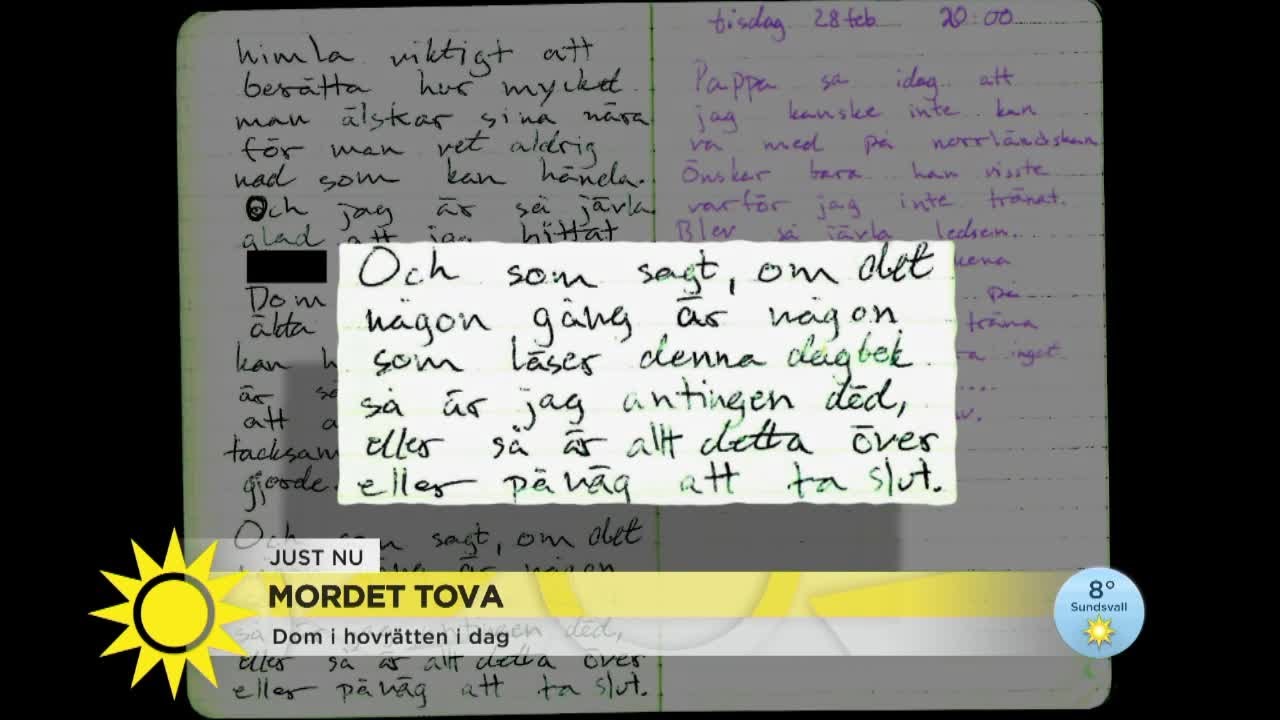 himla viktigt att
berätta hur mycket
man älskar sina nära
för man vet aldrig
vad som kan hända.
Och jag är så jävla
glad att jag hittat
Dom
äkta
kan h
är så
att a
tacksam
gjorde.
Och som sagt, om det
så är jag antingen död,
eller så är allt detta över
eller påväg att ta slut.
tisdag 28 feb 20:00
Pappa sa idag att
jag kanske inte kan
va med på norrländskan
Önskar bara han visste
varför jag inte tränat.
Blev så jävla ledsen.
på
träna
inget
Och som sagt, om det
någon gång är någon
som läser denna dagbok
så är jag antingen död,
eller så är allt detta över
eller påväg att ta slut.
JUST NU
MORDET TOVA
Dom i hovrätten i dag
8°
Sundsvall